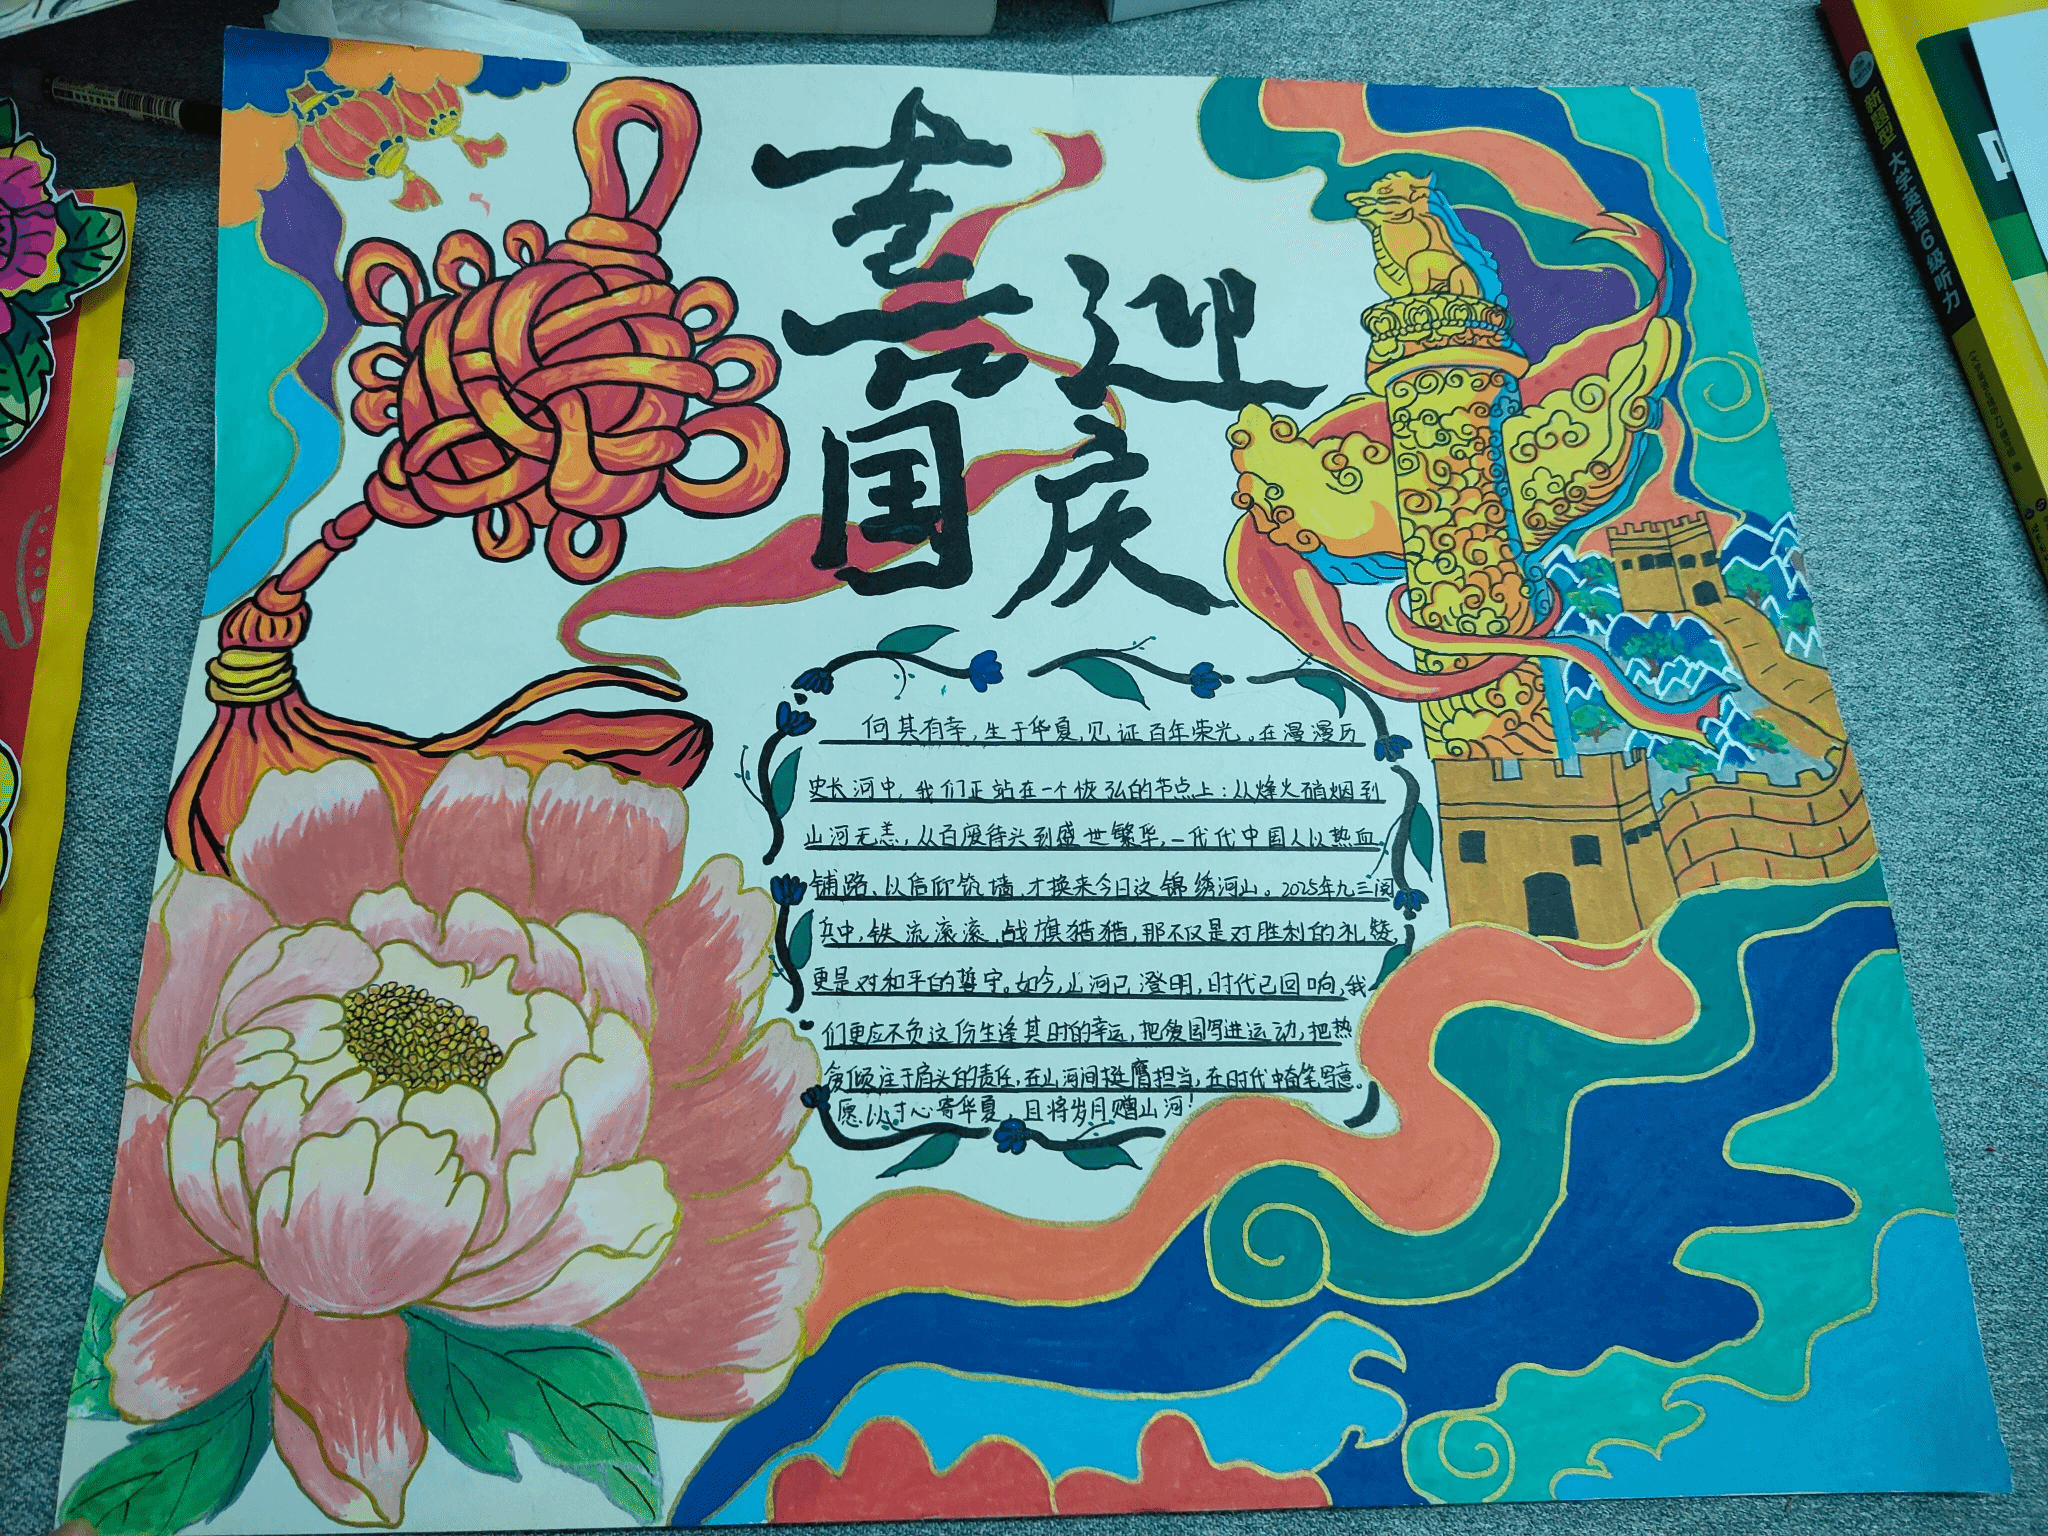 喜迎
国庆
何其有幸，生于华夏，见证百年荣光。在漫漫历
史长河中，我们正站在一个恢弘的节点上：从烽火硝烟到
山河无恙，从百废待兴到盛世繁华，一代代中国人以热血
铺路、以信仰筑墙，才换来今日这锦绣河山。2025年九三阅
兵中，铁流滚滚，战旗猎猎，那不仅是对胜利的礼赞，
更是对和平的誓守。如今，山河已澄明，时代已回响，我
们更应不负这份生逢其时的幸运，把爱国写进运动，把热
爱倾注于肩头的责任，在山河间挺膺担当，在时代中奋笔写意。
愿以寸心寄华夏，且将岁月赠山河！
新题型 大学英语6级听力